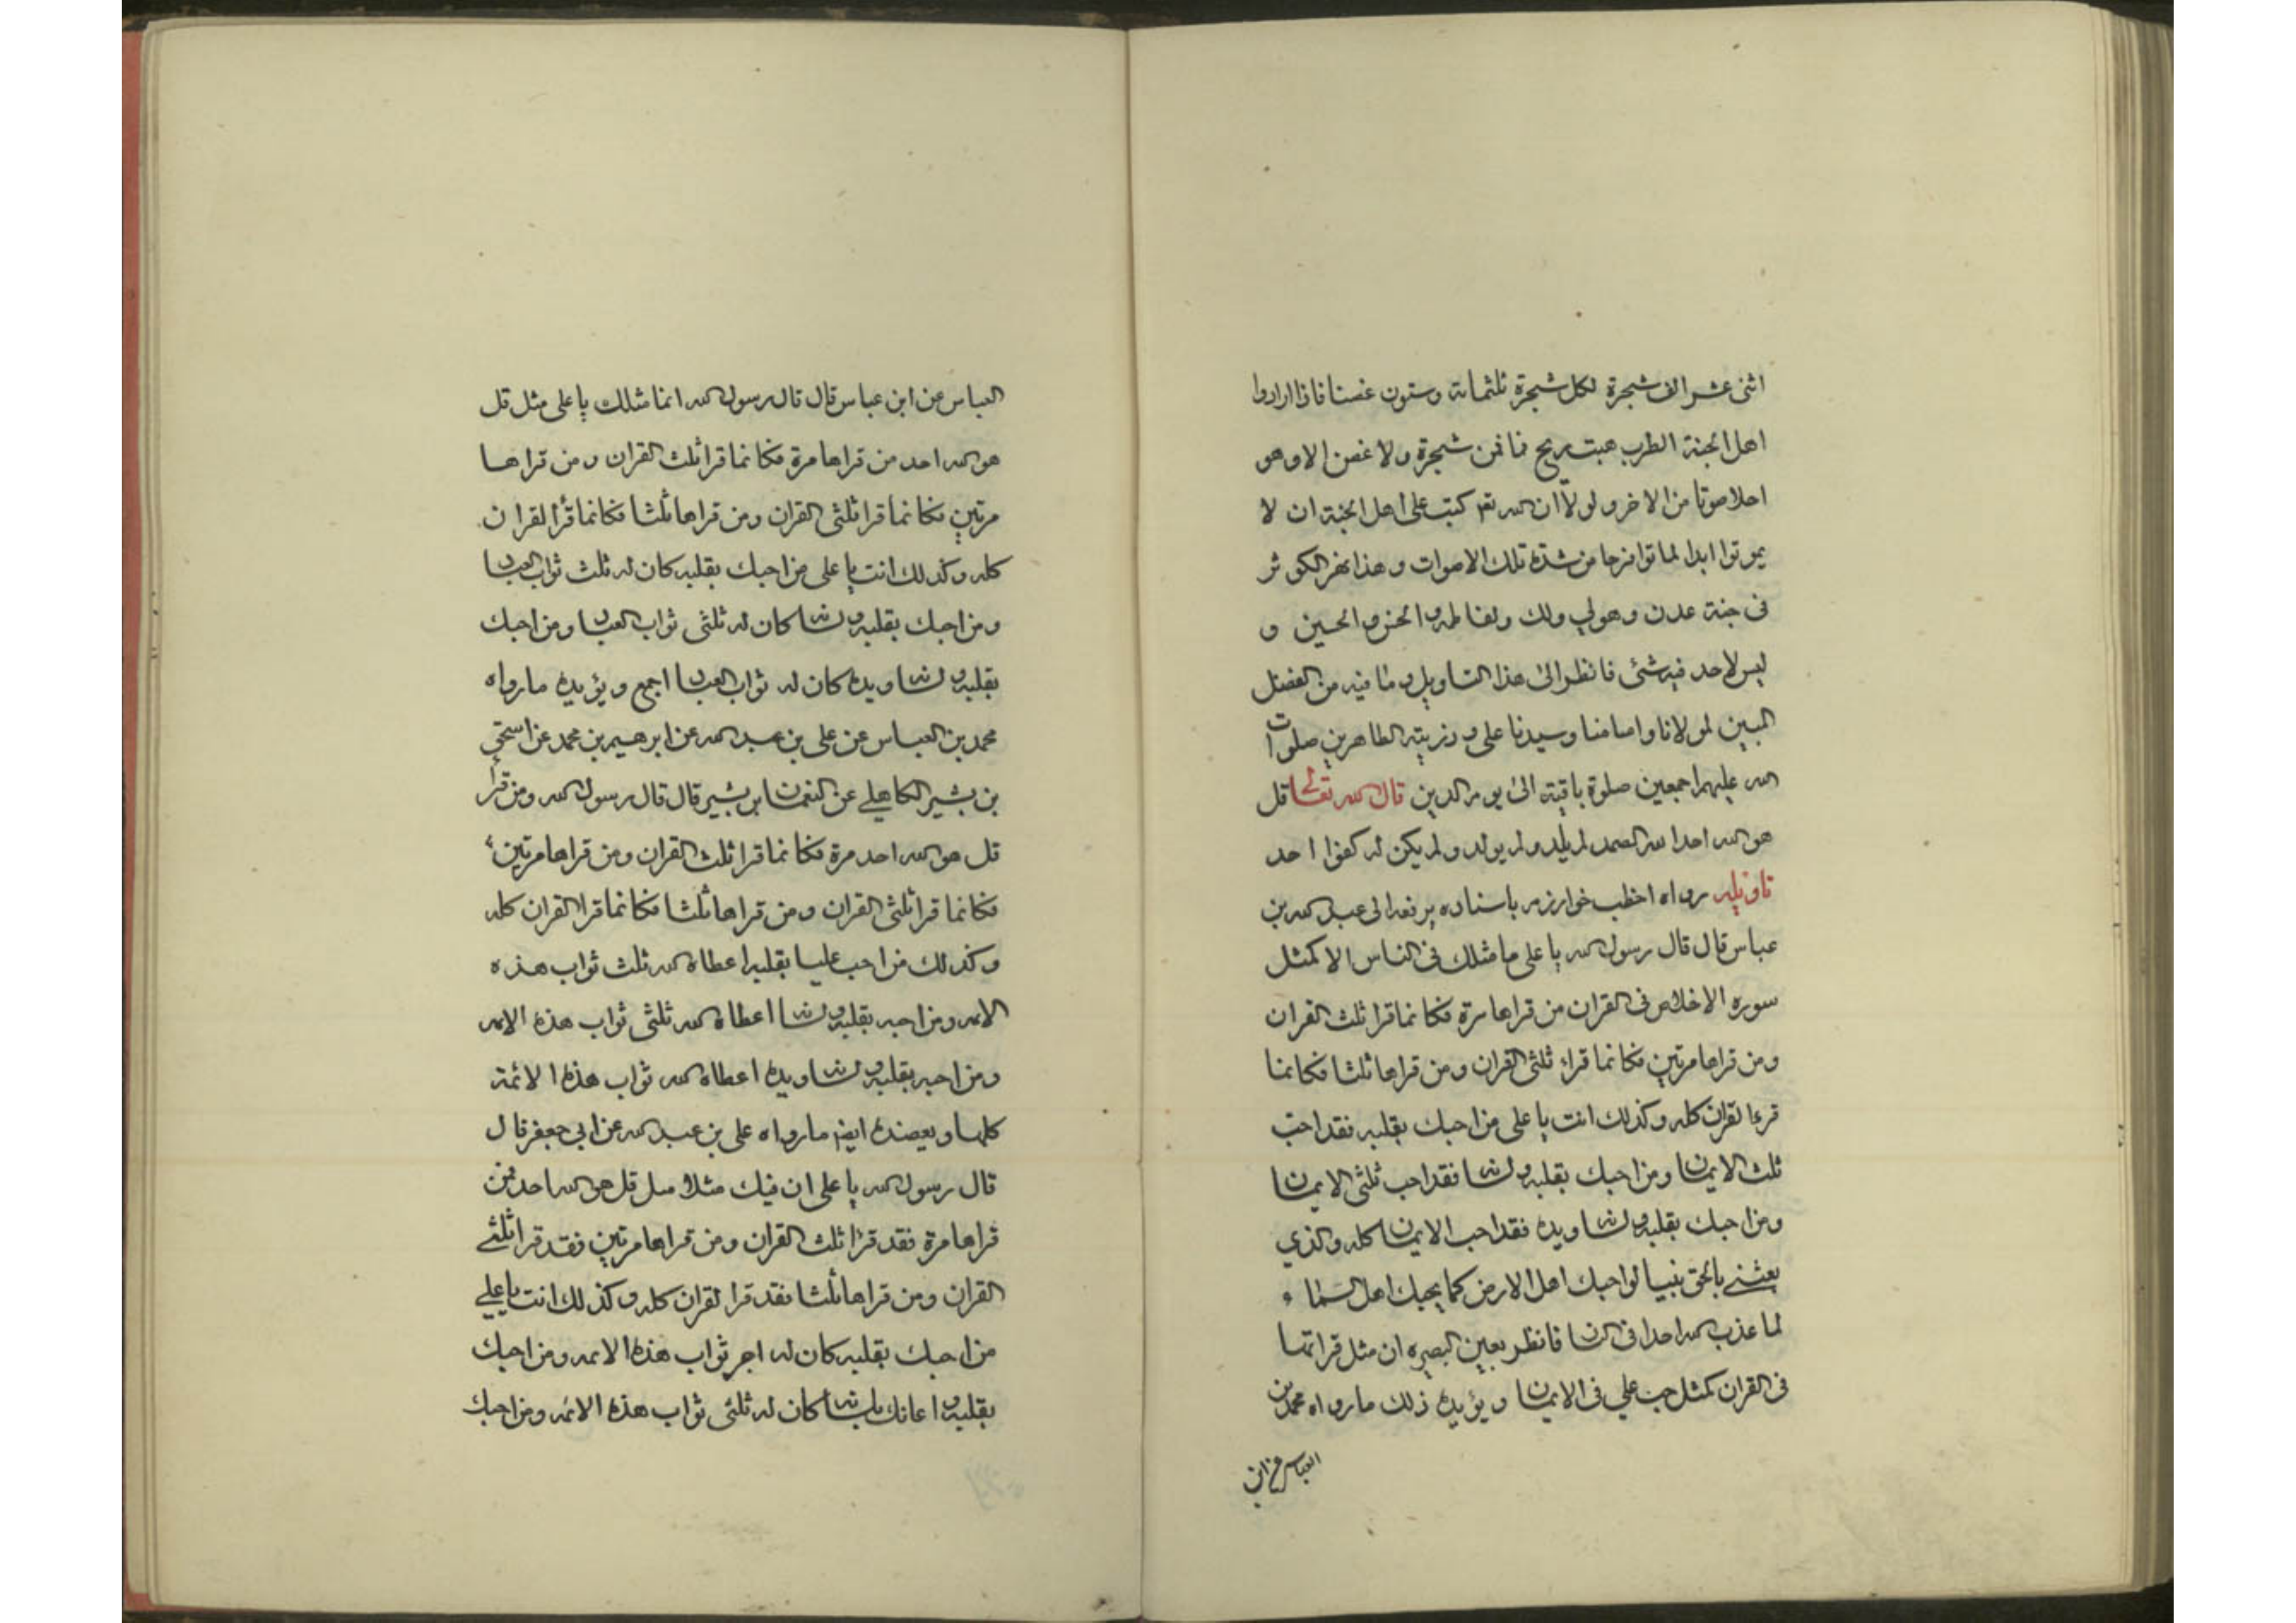 اثنى عشر الف شجرة لكل شجرة ثلثماتة وستون غصنا فاذا ارادوا
اهل الجنة الطرب هبت ريح فما من شجرة ولا غصن الا وهو
احلا صوتا من الاخر ولولا ان الله تعـ كتب على اهل الجنة ان لا
يموتوا ابدا لماتوا فرحا من شدة تلك الاصوات وهذا نهر الكوثر
فى جنة عدن وهو لي ولك ولفاطمه والحسن والحسين و
ليس لاحد فيه شئ فانظر الى هذا التاويل وما فيه من الفضل
المبين لمولانا وامامنا وسيدنا على وذريته الطاهرين صلوات
الله عليهم اجمعين صلوة باقية الى يوم الدين قال الله تعالى قل
هو الله احد الله الصمد لم يلد ولم يولد ولم يكن له كفوا احد
تاويله رواه اخطب خوارزم باسناده يرفعه الى عبد الله بن
عباس قال قال رسول الله يا على ما مثلك فى الناس الا كمثل
سوره الاخلاص فى القران من قراها مرة فكانما قرا ثلث القران
ومن قراها مرتين فكانما قراء ثلثى القران ومن قراها ثلثا فكانما
قرء القران كله وكذلك انت يا على من احبك بقلبه فقد احب
ثلث الايمان ومن احبك بقلبه ولسانه فقد احب ثلثى الايمان
ومن احبك بقلبه ولسانه ويده فقد احب الايمان كله والذي
بعثنے بالحق نبيا لو احبك اهل الارض كما يحبك اهل السماء
لما عذب الله احدا فى النار فانظر بعين البصيره ان مثل قراتها
فى القران كمثل حب علي فى الايمان ويؤيده ذلك ما رواه محمد بن
العباس عن ابن
العباس عن ابن عباس قال قال رسول الله انما مثلك يا على مثل قل
هو الله احد من قراها مرة فكانما قرا ثلث القران ومن قراها
مرتين فكانما قرا ثلثى القران ومن قراها ثلثا فكانما قرأ القران
كله وكذلك انت يا على من احبك بقلبه كان له ثلث ثواب العباد
ومن احبك بقلبه ولسانه كان له ثلثى ثواب العباد ومن احبك
بقلبه ولسانه ويده كان له ثواب العباد اجمع ويؤيده ما رواه
محمد بن العباس عن على بن عبد الله عن ابرهيم بن محمد عن اسحق
بن بشير الكاهلے عن النعمان ابن بشير قال قال رسول الله ومن قرأ
قل هو الله احد مرة فكانما قرا ثلث القران ومن قراها مرتين
فكانما قرا ثلثى القران ومن قراها ثلثا فكانما قرا القران كله
وكذلك من احب عليا بقلبه اعطاه الله ثلث ثواب هذه
الامه ومن احبه بقلبه ولسانه اعطاه الله ثلثى ثواب هذه الامه
ومن احبه بقلبه ولسانه ويده اعطاه الله ثواب هذه الائمة
كلها ويعضده ايضـ ما رواه على بن عبد الله عن ابي جعفر قال
قال رسول الله يا على ان فيك مثلا مثل قل هو الله احد فمن
قراها مرة فقد قرا ثلث القران ومن قراها مرتين فقد قرا ثلثے
القران ومن قراها ثلثا فقد قرا القران كله وكذلك انت يا علے
من احبك بقلبه كان له اجر ثواب هذه الامه ومن احبك
بقلبه واعانك بلسانه كان له ثلثى ثواب هذه الائمه ومن احبك